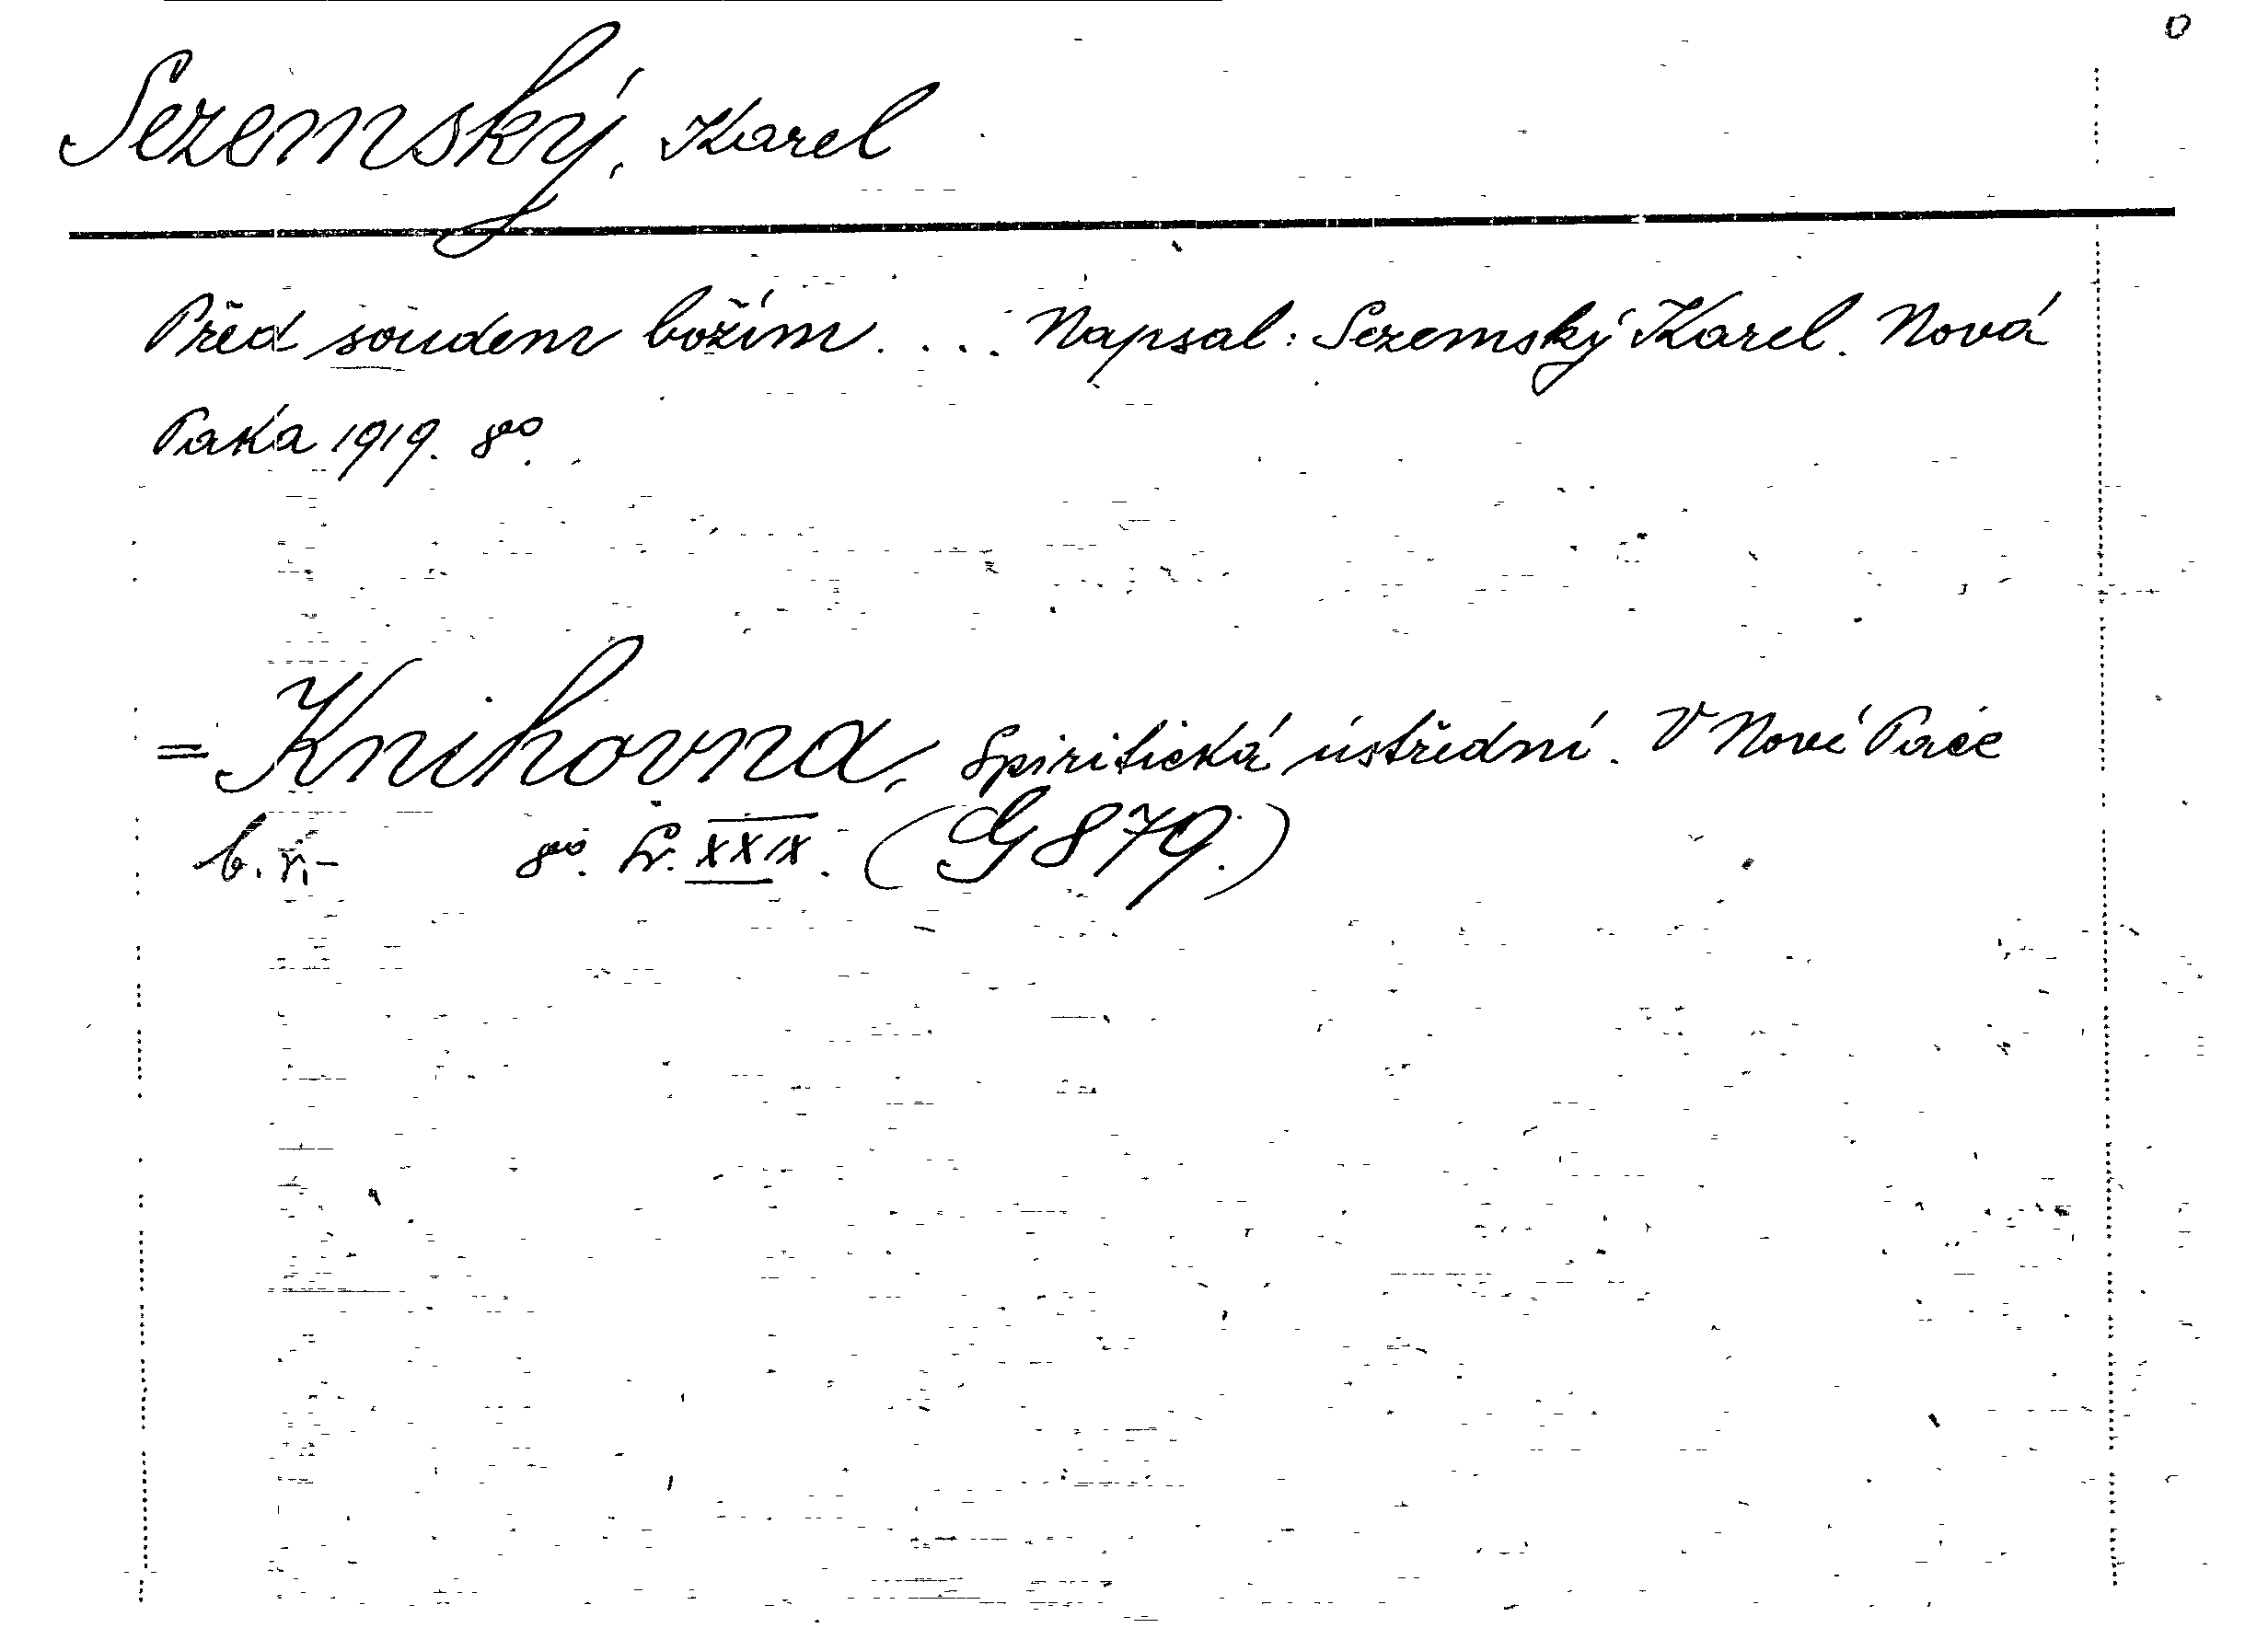 Sezemský, Karel
Před soudem božím. ... Napsal: Sezemský Karel. Nová
Paka 1919. 8º.
= Knihovna, Spiritická ústřední. V Nové Pace
b. r. - 8º. Sv. XXIX. (G 879.)